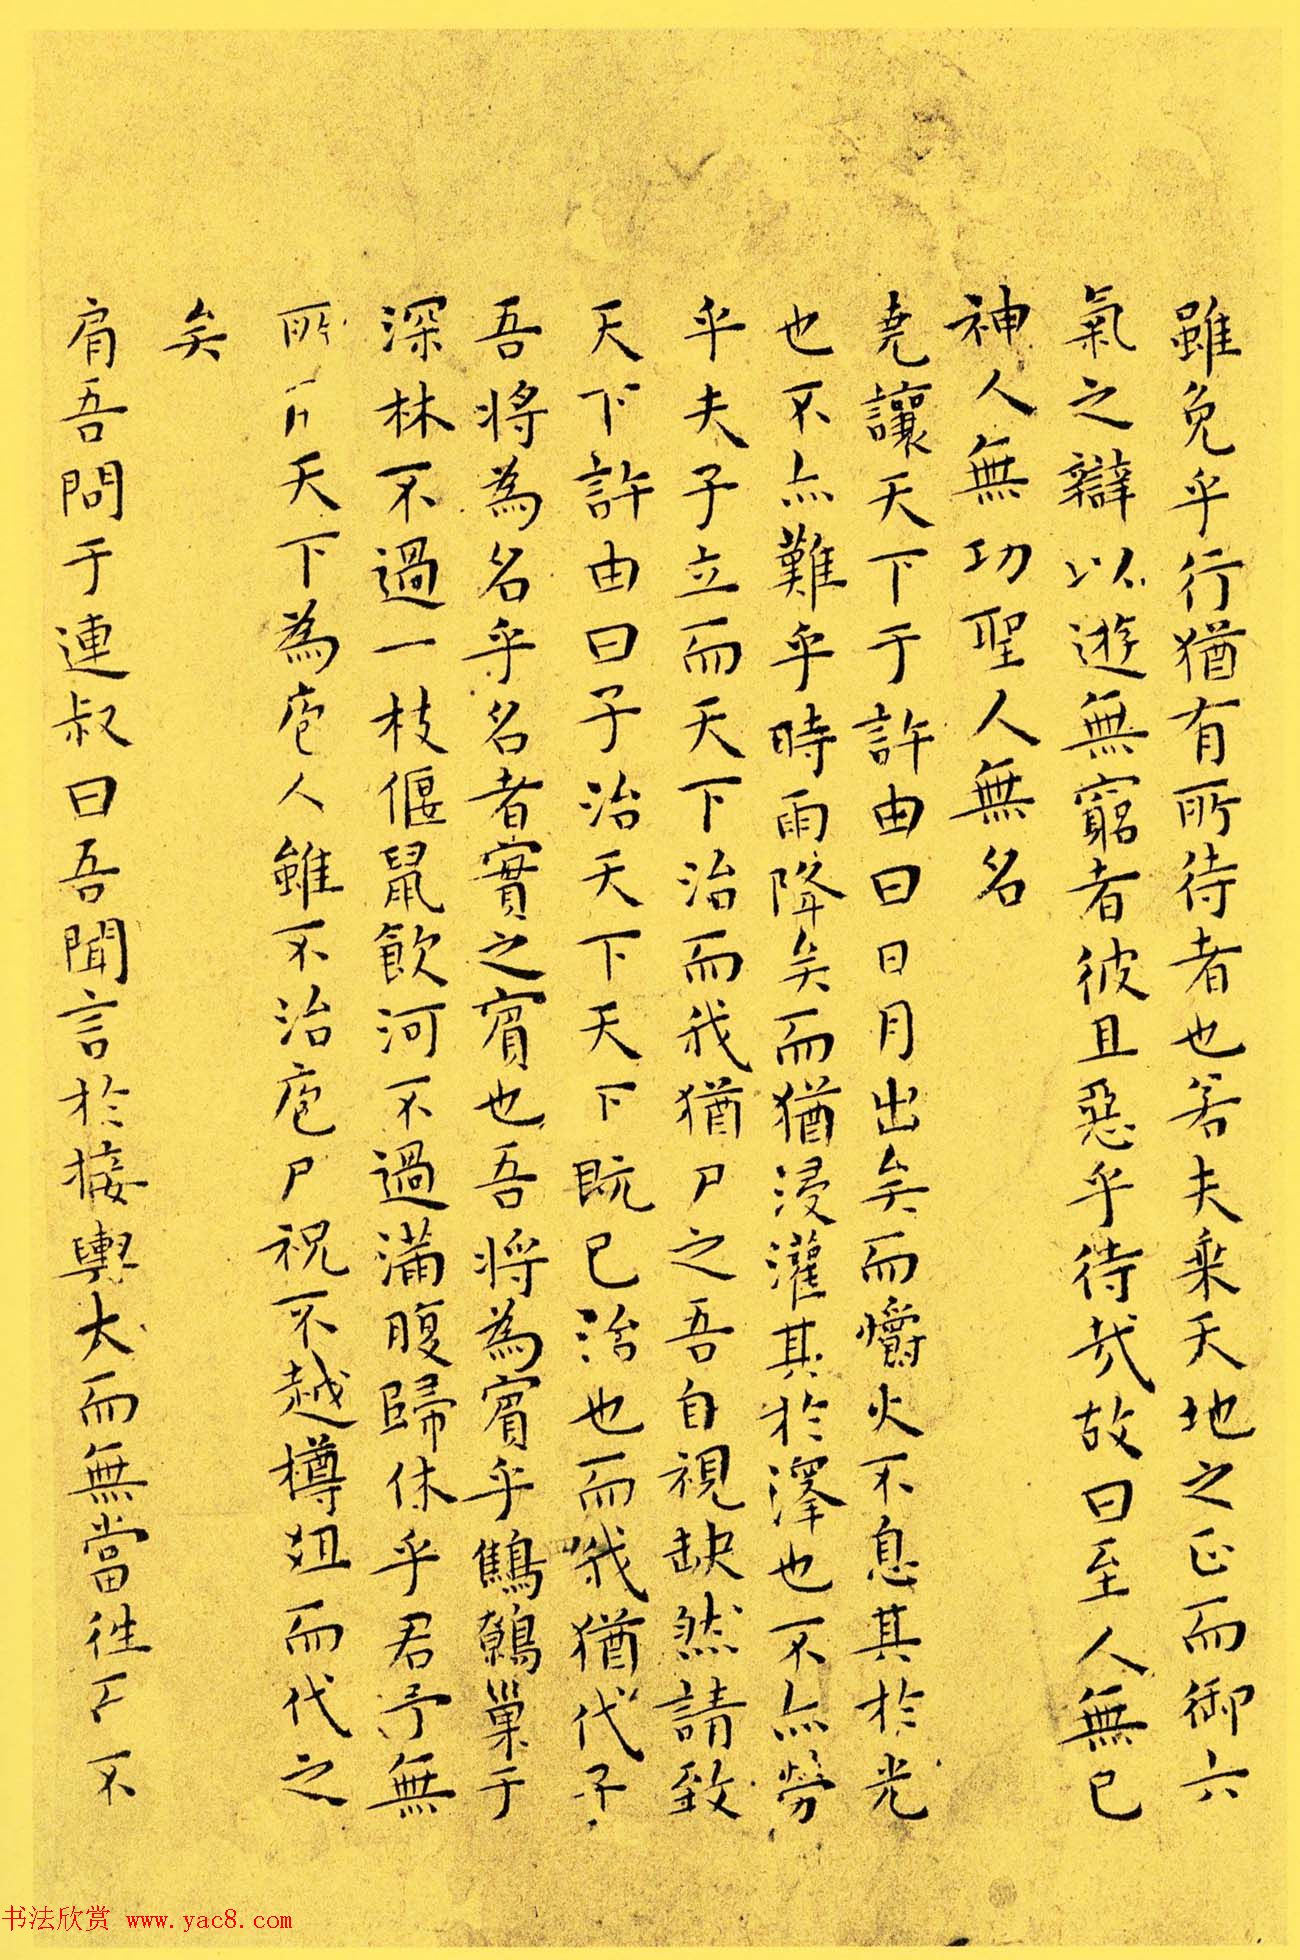 雖免乎行猶有所待者也若夫乘天地之正而御六
氣之辯以遊無窮者彼且惡乎待哉故曰至人無已
神人無功聖人無名
堯讓天下于許由曰日月出矣而爝火不息其於光
也不亦難乎時雨降矣而猶浸灌其於澤也不亦勞
乎夫子立而天下治而我猶尸之吾自視缺然請致
天下許由曰子治天下天下既已治也而我猶代子
吾將為名乎名者實之賓也吾將為賓乎鷦鷯巢于
深林不過一枝偃鼠飲河不過滿腹歸休乎君予無
所天下為庖人雖不治庖尸祝不越樽俎而代之
矣
肩吾問于連叔曰吾聞言於接輿大而無當往不
书法欣赏 www.yac8.com